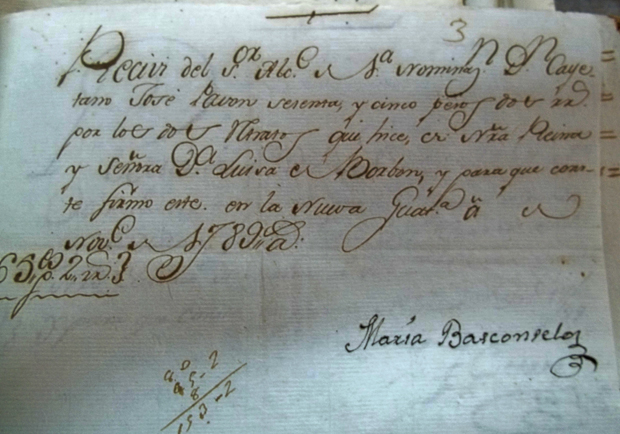 3
Recivi del S.or Alc.e de 1.a Nominaz.n D.n Caye-
tano José Pavon sesenta, y cinco pesos dos rr.
por los dos Rtratos que hice, de Ntra Reina
y Señra D.a Luisa de Borbon, y para que cons-
te firmo este. en la Nueva Guat.a à de
Nov.e de 1789 a.
65 p.s 2 rr.
María Basconselos
153-2